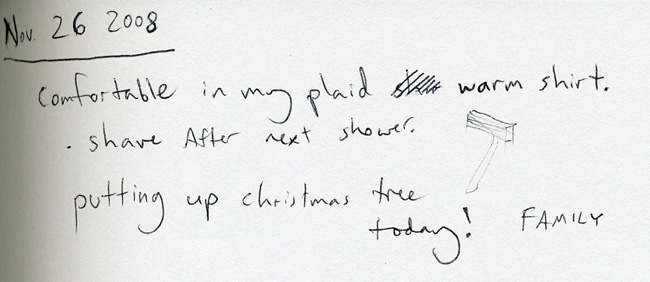 Nov. 26 2008
Comfortable in my plaid warm shirt.
. shave After next shower.
putting up christmas tree
today!
FAMILY